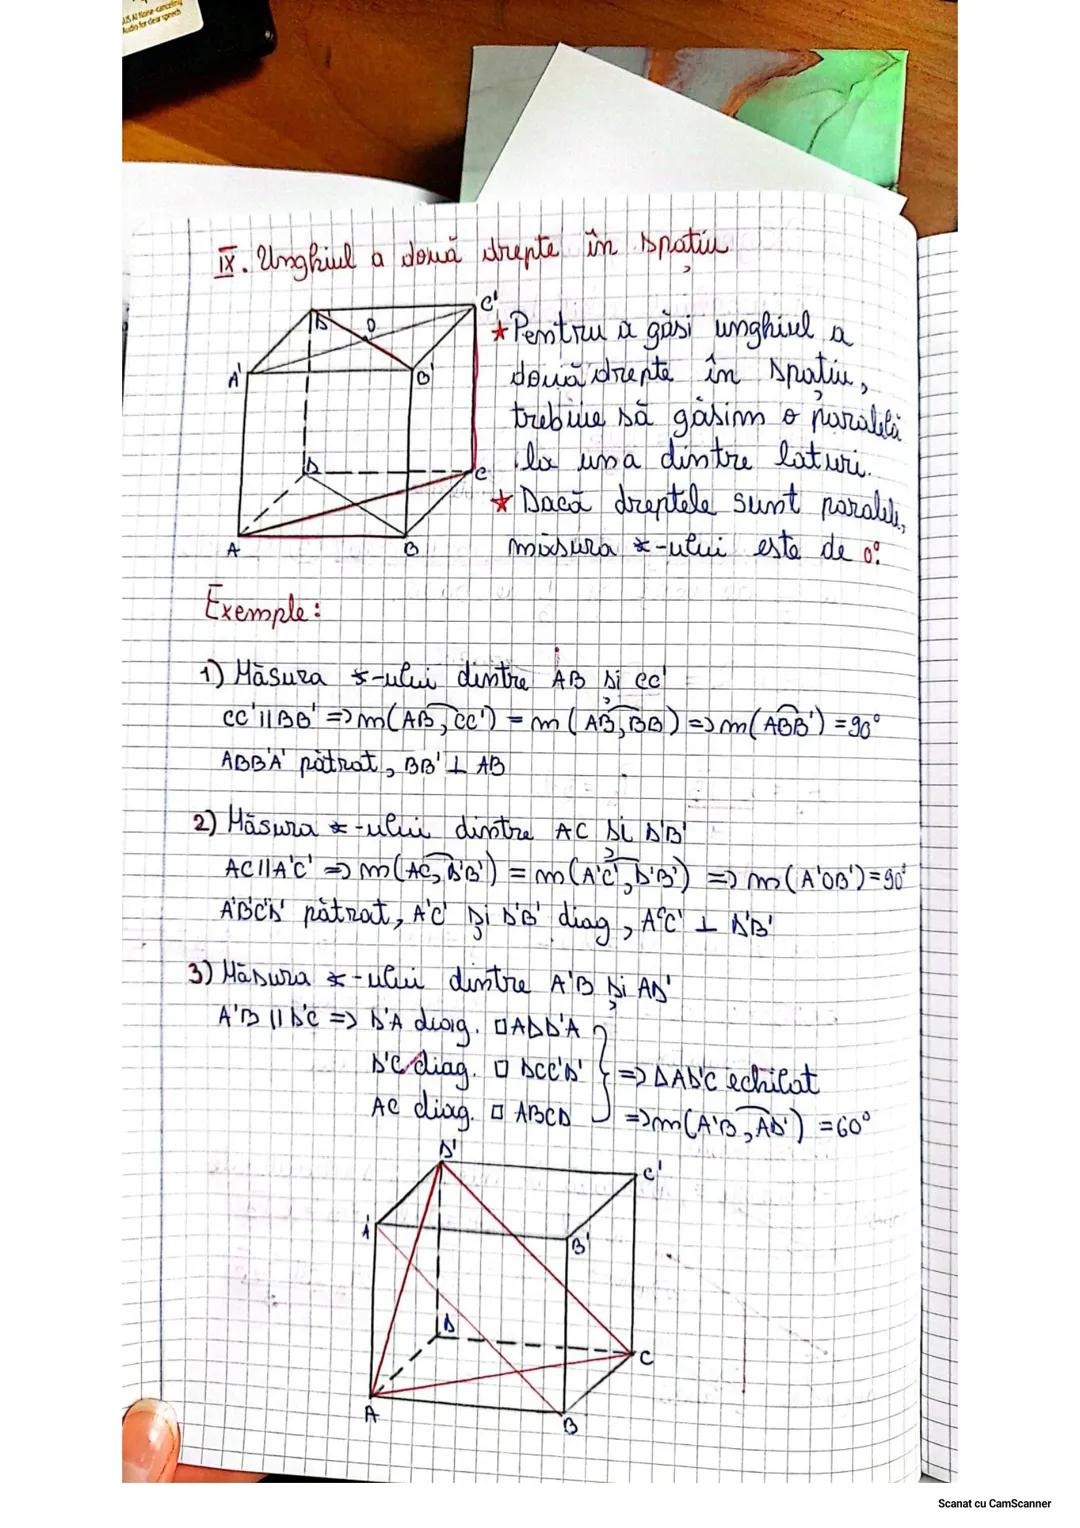 US AI Noise-canceling
Audio for clear speech
IX. Unghiul a două drepte în spațiu
D' O C'
A' B'
D C
A B
* Pentru a găsi unghiul a
două drepte în spațiu,
trebuie să găsim o paralelă
la una dintre laturi.
* Dacă dreptele sunt paralele,
măsura ∢-ului este de 0°.
Exemple:
1) Măsura ∢-ului dintre AB și CC'
CC' || BB' => m(AB, CC') = m(AB, BB) => m(ABB') = 90°
ABB'A' pătrat, BB' ⊥ AB
2) Măsura ∢-ului dintre AC și D'B'
AC || A'C' => m(AC, D'B') = m(A'C', D'B') => m(A'OB') = 90°
A'B'C'D' pătrat, A'C' și D'B' diag, A'C' ⊥ D'B'
3) Măsura ∢-ului dintre A'B și AD'
A'B || D'C => D'A diag. □ ADD'A
D'C diag. □ DCC'D' } => Δ AD'C echilat
AC diag. □ ABCD => m(A'B, AD') = 60°
D' C'
A' B'
D C
A B
Scanat cu CamScanner